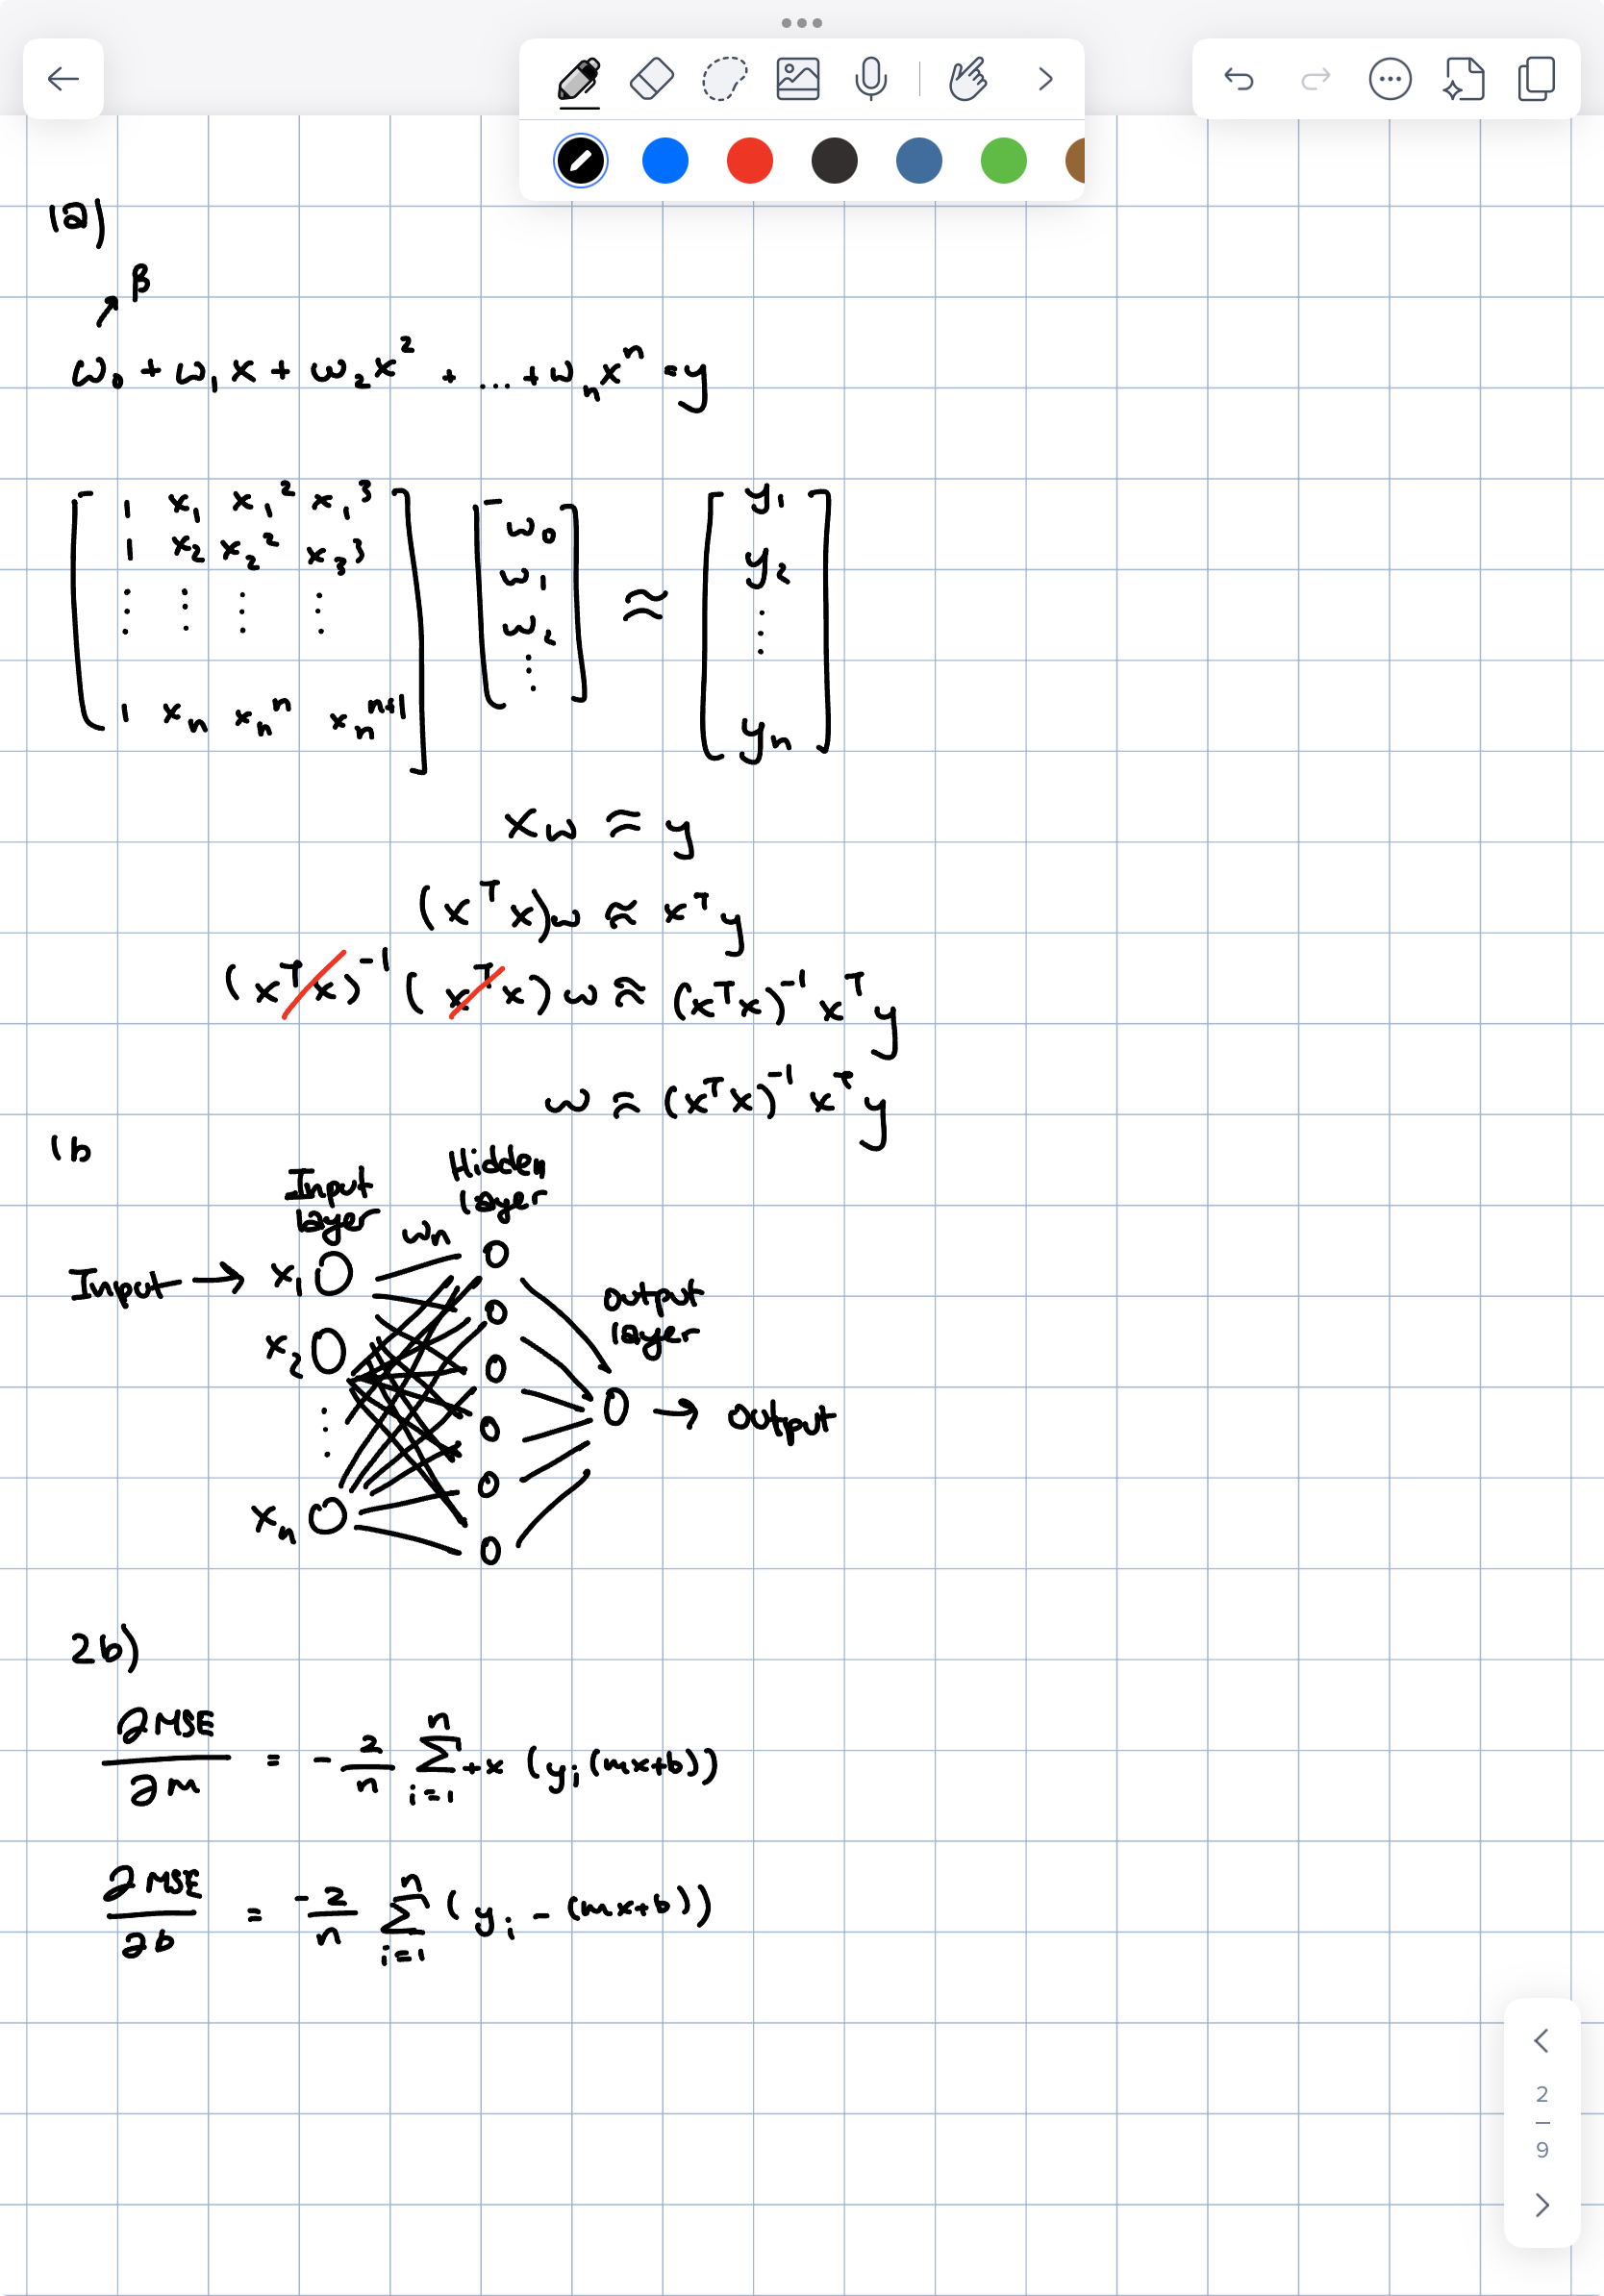 1a)
β
ω₀ + ω₁x + ω₂x² + ... + ωₙxⁿ = y
1 x₁ x₁² x₁³
1 x₂ x₂² x₃³
⋮ ⋮ ⋮ ⋮
1 xₙ xₙⁿ xₙⁿ⁺¹
ω₀
ω₁
ω₂
⋮
≈
y₁
y₂
⋮
yₙ
xω ≈ y
(xᵀx)ω ≈ xᵀy
(xᵀx)⁻¹(xᵀx)ω ≈ (xᵀx)⁻¹xᵀy
ω ≈ (xᵀx)⁻¹xᵀy
1b
Input layer
ωₙ
Hidden layer
Input → x₁
x₂
⋮
xₙ
output layer
→ output
2b)
∂MSE/∂m = -2/n Σⁿᵢ₌₁ +x (yᵢ(mx+b))
∂MSE/∂b = -2/n Σⁿᵢ₌₁ (yᵢ - (mx+b))
2
9